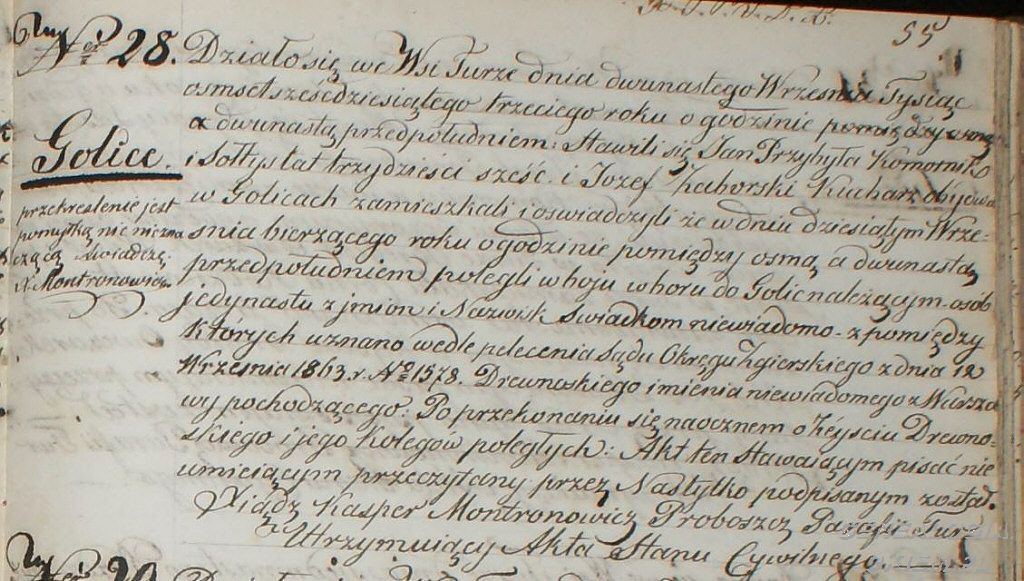 55
Ner 28. Działo się we Wsi Turze dnia dwunastego Września Tysiąc
osmset sześćdziesiątego trzeciego roku o godzinie pomiędzy osmą
a dwunastą przedpołudniem: Stawili się Jan Przybyła Komornik
Golice. i Sołtys lat trzydzieści sześć i Jozef Zaborski Kucharz obydwa
w Golicach zamieszkali i oswiadczyli że w dniu dziesiątym Wrze-
snia bierzącego roku o godzinie pomiędzy osmą a dwunastą
przedpołudniem polegli w boju w boru do Golic należącym osób
jedynastu z jmion i Nazwisk Swiadkom niewiadomo - z pomiędzy
których uznano wedle polecenia Sądu Okręgu Zgierskiego z dnia 12
Września 1863 r. No 1578. Drewnoskiego imienia niewiadomego z Warsza
wy pochodzącego: Po przekonaniu się naocznem o Zeyściu Drewno-
skiego i jego Kolegów poległych: Akt ten Stawaiącym pisać nie
umieiącym przeczytany przez Nas tylko podpisanym został.
Xiądz Kasper Montronowicz Proboszcz Parafii Tur
Utrzymuiący Akta Stanu Cywilnego.
przekreslenie jest
pomyłką nic niezna
czącą Swiadczą
X. Montronowicz